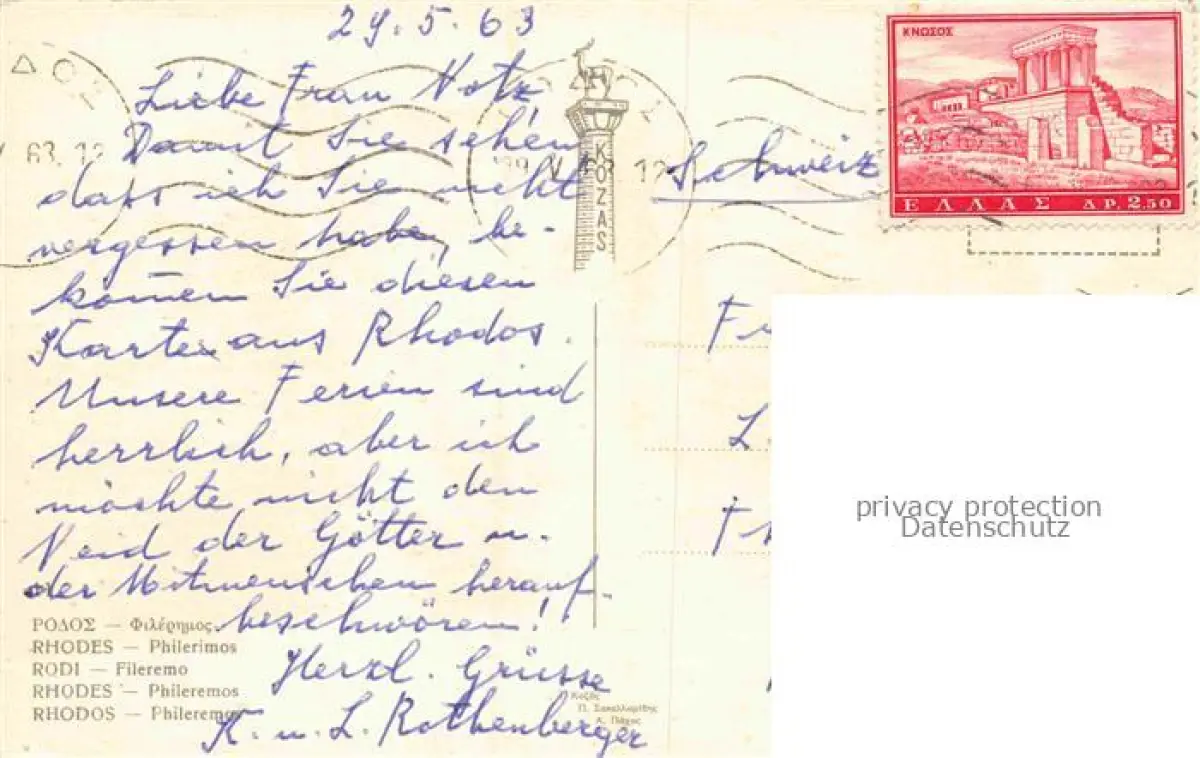 29.5.63
Liebe Frau Notz,
Damit Sie sehen
dass ich Sie nicht
vergessen habe, be-
komen Sie diesen
Karte aus Rhodos.
Unsere Ferien sind
herrlich, aber ich
möchte nicht den
Neid der Götter u.
der Mitmenschen herauf-
beschwören!
Herzl. Grüsse
K. u. L. Rothenberger
ΡΟΔΟΣ — Φιλέρημος
RHODES — Philerimos
RODI — Fileremo
RHODES — Phileremos
RHODOS — Phileremos
Κοζάς
Π. Σακελλαρίδης
Λ. Πάχος
KOZAS
ΔΟΣ
63. 12
Schweiz
ΚΝΩΣΟΣ
ΕΛΛΑΣ ΔΡ. 2.50
Fr
L.
privacy protection
Datenschutz